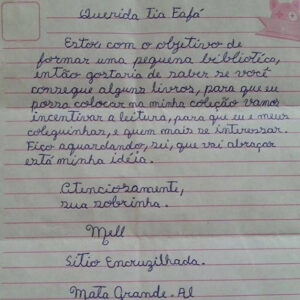 Querida Tia Fafá
Estou com o objetivo de
formar uma pequena biblioteca,
então gostaria de saber se você
consegue alguns livros, para que eu
possa colocar na minha coleção vamos
incentivar a leitura, para que eu e meus
coleguinhas, e quem mais se interessar.
Fico aguardando, sei, que vai abraçar
está minha idéia.
Atenciosamente,
sua sobrinha.
Mell
Sitio Encruzilhada.
Mata Grande. Al